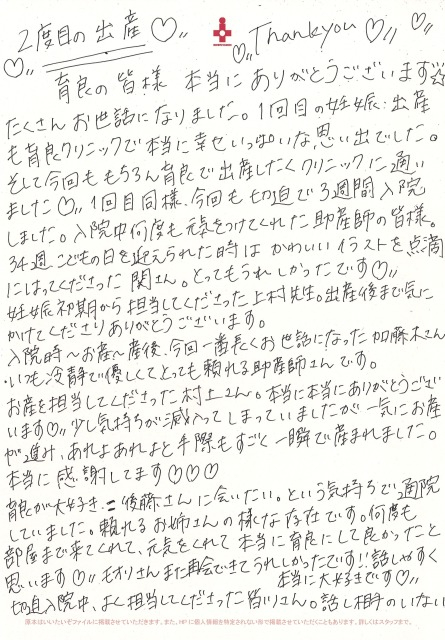 2度目の出産♡〃
Thankyou♡〃♡〃
♡〃育良の皆様 本当にありがとうございます☆
たくさんお世話になりました。1回目の妊娠・出産
も育良クリニックで本当に幸せいっぱいな思い出でした。
そして今回ももちろん育良で出産したくクリニックに通い
ました♡〃1回目同様、今回も切迫で3週間入院
しました。入院中何度も元気をつけてくれた助産師の皆様。
34週、こどもの日を迎えられた時はかわいいイラストを点滴
にはってくださった関さん。とってもうれしかったです♡〃
妊娠初期から担当してくださった上村先生。出産後まで気に
かけてくださりありがとうございます。
入院時〜お産〜産後、今回一番長くお世話になった加藤木さん
いつも冷静で優しくてとっても頼れる助産師さんです。
お産を担当してくださった村上さん。本当に本当にありがとうござい
います♡〃少し気持ちが滅入ってしまっていましたが一気にお産
が進み、あれよあれよと手際もすごく一瞬で産まれました。
本当に感謝してます♡♡♡
育良が大好き=後藤さんに会いたい。という気持ちで通院
していました。頼れるお姉さんの様な存在です。何度も
部屋まで来てくれて、元気をくれて本当に育良にして良かったと
思います♡〃もオリさんまた再会できてうれしかったです!!話しやすく
本当に大好きです♡〃
切迫入院中、よく担当してくださった皆川さん。話し相手のいない
原本はいいたいぞファイルに掲載させていただきます。また、HPに個人情報を特定されない形で掲載させていただくこともあります。詳しくはスタッフまで。